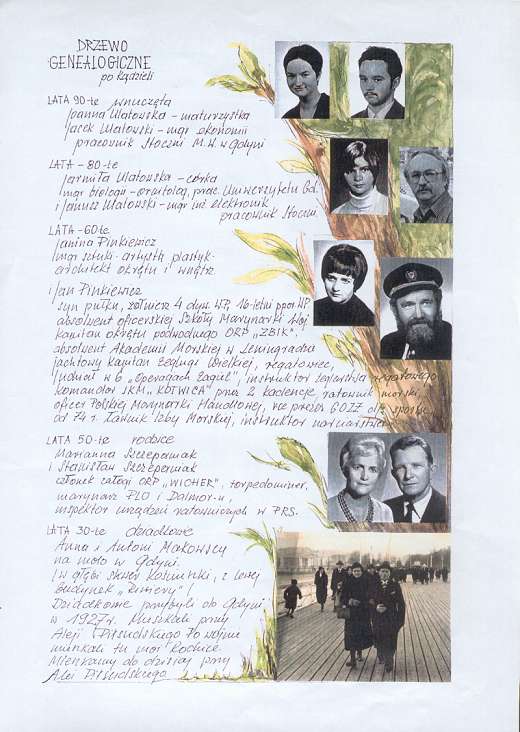 DRZEWO
GENEALOGICZNE
po kądzieli
LATA 90-te wnuczęta
Joanna Ulatowska - maturzystka
Jacek Ulatowski - mgr ekonomii
pracownik Stoczni M.W. w Gdyni
LATA - 80-te
Jarmiła Ulatowska - córka
mgr biologii - ornitolog, prac. Uniwersytetu Gd.
i Janusz Ulatowski - mgr inż. elektronik
pracownik Stoczni
LATA - 60-te
Janina Pinkiewicz
mgr sztuki - artysta plastyk -
architekt okrętu i wnętrz
i Jan Pinkiewicz
syn pułku, żołnierz 4 dyw. WP, 16-letni ppor. WP
absolwent oficerskiej Szkoły Marynarki Woj.
kapitan okrętu podwodnego ORP "ŻBIK"
absolwent Akademii Morskiej w Leningradzie
jachtowy kapitan żeglugi wielkiej, regatowiec,
/udział w 6 "Operacjach Żagiel", instruktor żeglarstwa regatowego
komandor JKM "KOTWICA" przez 2 kadencje, ratownik morski
oficer Polskiej Marynarki Handlowej, vce prezes GOZŻ d/s sportu
od 74 r. ławnik Izby Morskiej, instruktor
LATA 50-te rodzice
Marianna Szczepaniak
i Stanisław Szczepaniak
członek załogi ORP "WICHER", torpedominer,
marynarz PLO i Dalmor-u,
inspektor urządzeń ratowniczych w PRS.
LATA 30-te dziadkowie
Anna i Antoni Makowscy
na molo w Gdyni.
/w głębi skwer Kościuszki, z lewej
budynek "Riwiery"/
Dziadkowie przybyli do Gdyni
w 1927 r. Mieszkali przy
Alei Piłsudskiego Po wojnie
mieszkali tu moi Rodzice.
Mieszkamy do dzisiaj przy
Alei Piłsudskiego